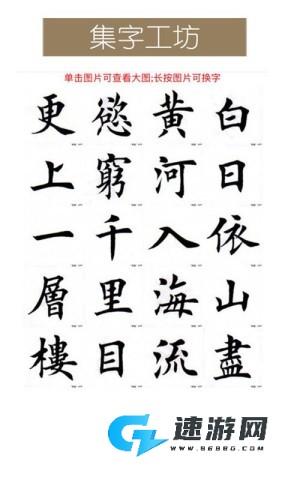 集字工坊
单击图片可查看大图;长按图片可换字
白日依山盡
黄河入海流
慾窮千里目
更上一層樓
速游网